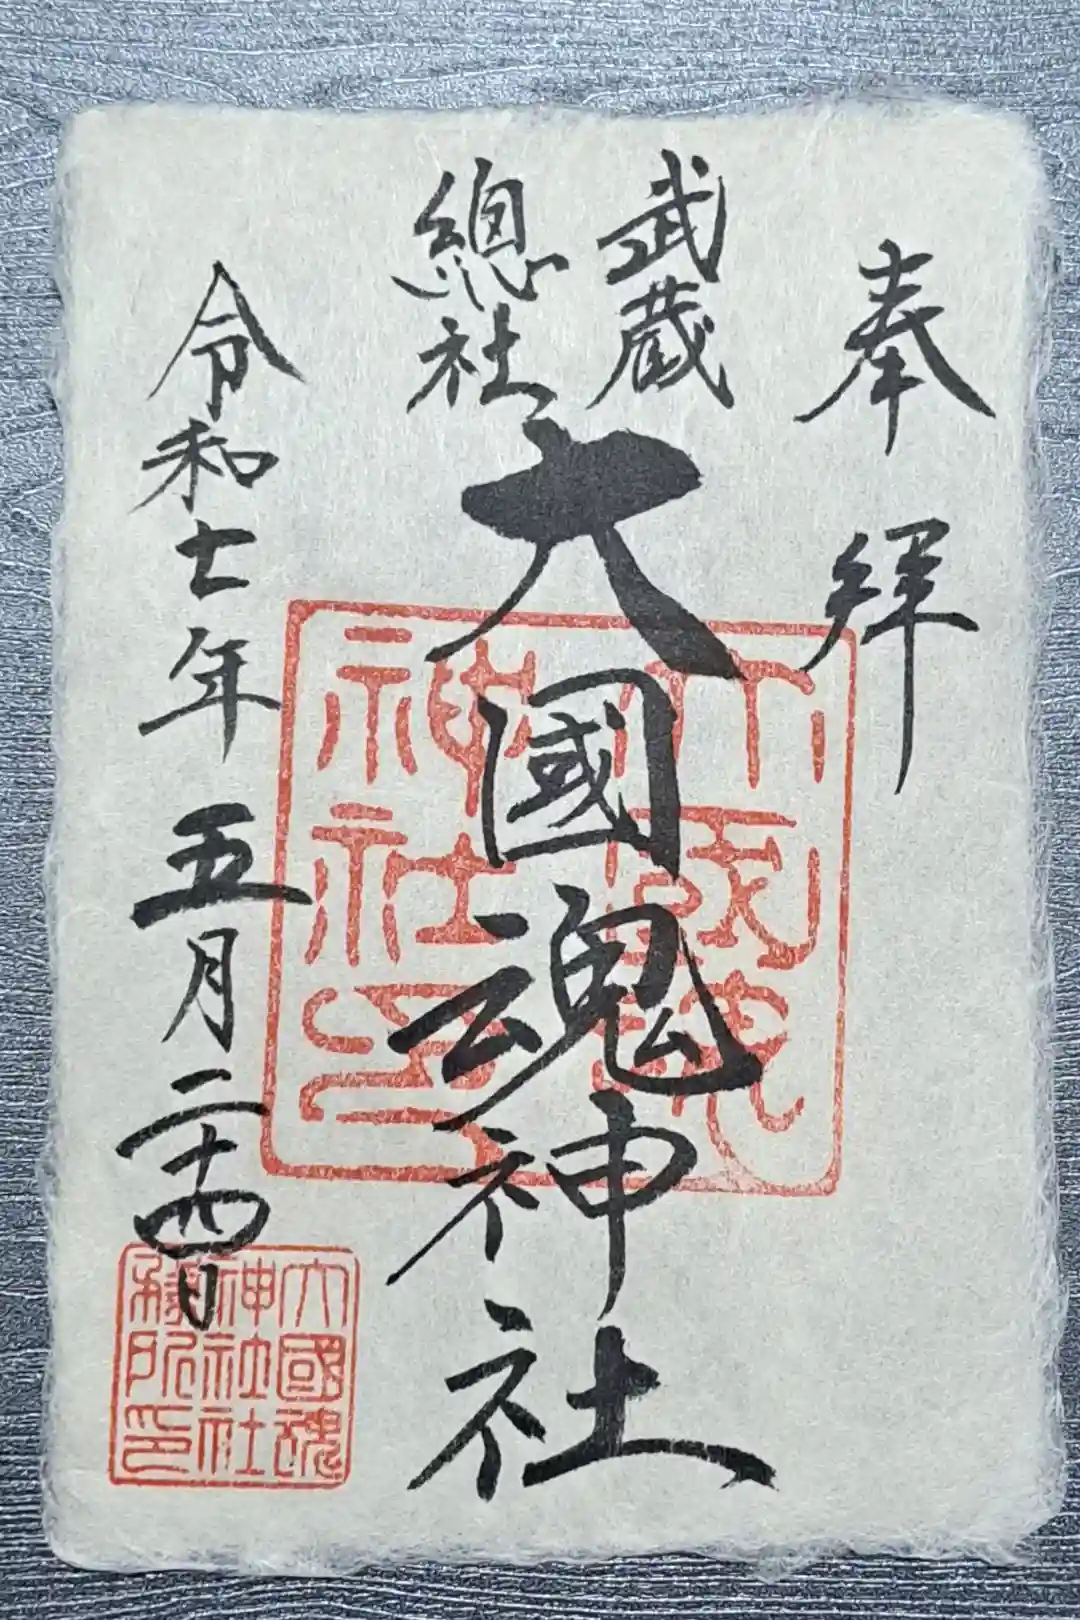 奉拜
武蔵
總社
大國魂神社
令和七年五月二十四日
大國魂
神社印
大國魂
神社社
務所印